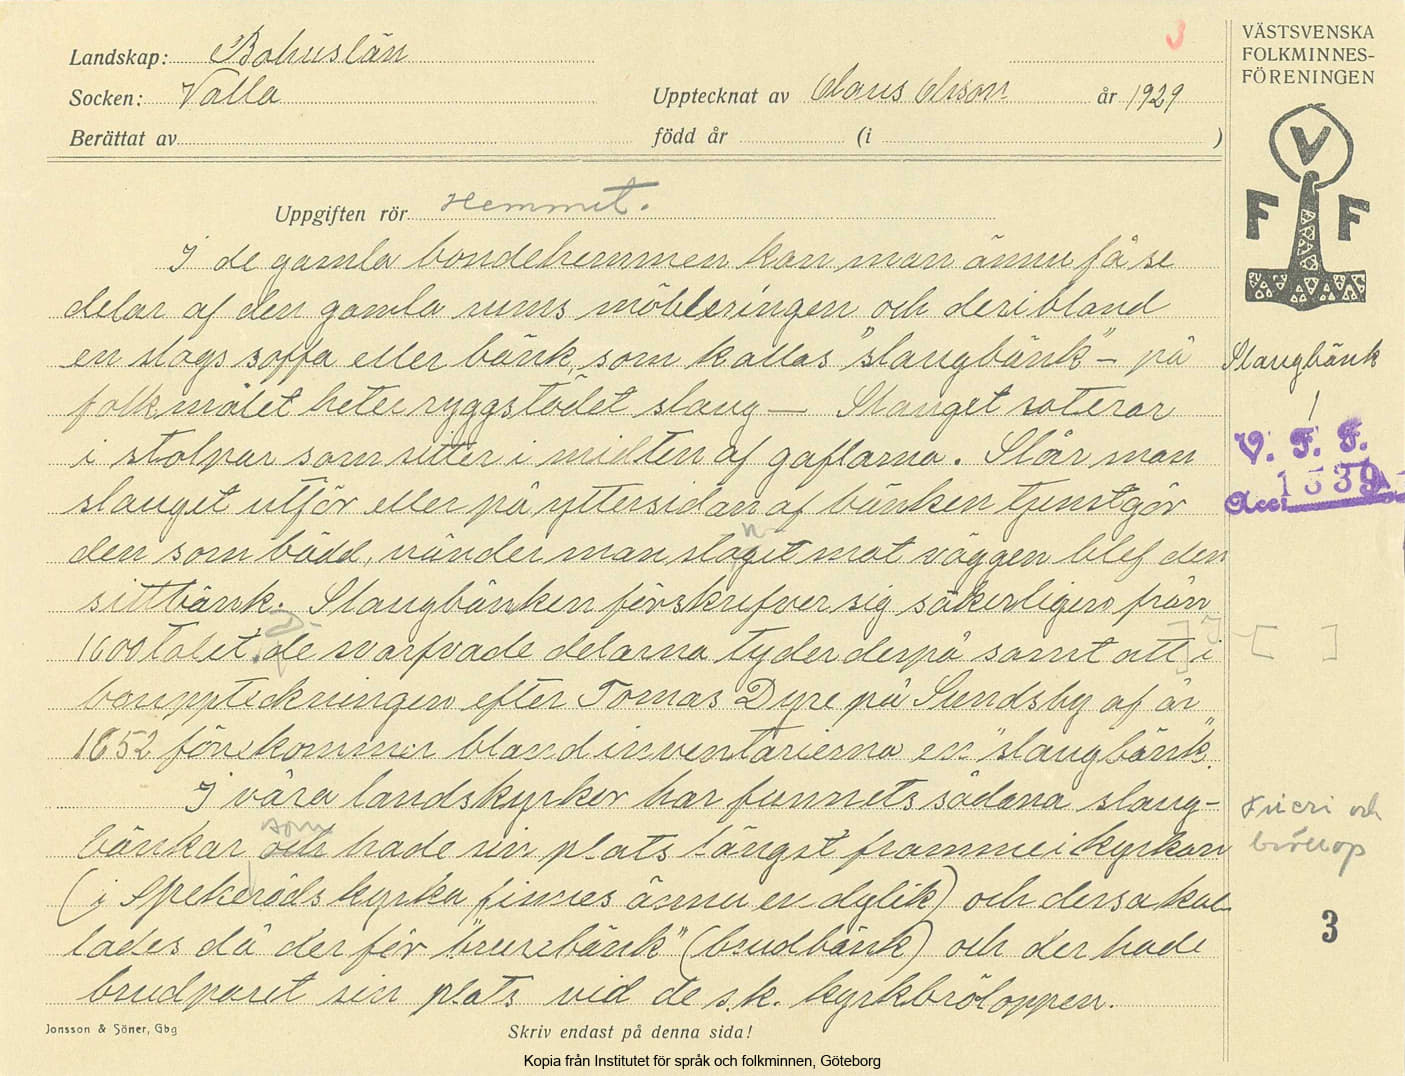 Landskap: Bohuslän
Socken: Valla
Upptecknat av Claus Olsson år 1929
Berättat av
född år (i )
3
VÄSTSVENSKA
FOLKMINNES-
FÖRENINGEN
V
F F
Uppgiften rör Hemmet.
I de gamla bondehemmen kan man ännu få se
delar af den gamla rums möbleringen och deribland
en slags soffa eller bänk, som kallas "slaugbänk" – på
folkmålet heter ryggstödet slaug — Slauget roterar
i stolpar som sitter i midten af gaflarna. Slår man
slauget utför eller på yttersidan af bänken tjenstgör
den som bädd, vänder man slaget mot väggen blef den
sittbänk. Slaugbänken förskrifver sig säkerligen från
1600talet. de svarfvade delarna tyder derpå samt att i
bouppteckningen efter Tomas Dyre på Sundsby af år
1652 förekommer bland inventarierna en "slaugbänk".
I våra landskyrkor har funnets sådana slaug-
bänkar och som hade sin plats längst framme i kyrkan
(i Spekeröds kyrka finnes ännu en dylik) och dessa kal-
lades då der för "brurebänk" (brudbänk) och der hade
brudparet sin plats vid de s.k. kyrkbröloppen.
Slaugbänk
V. F. F.
Acc. 1539
[ ]
Frieri och
bröllop
3
Jonsson & Söner, Gbg
Skriv endast på denna sida!
Kopia från Institutet för språk och folkminnen, Göteborg